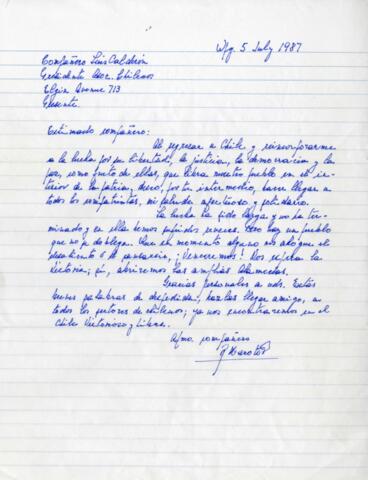 Wpg. 5 July 1987
Compañero Luis Calderón
Presidente Asoc. Chilenos
Elgin Avenue 713
Presente.
Estimado compañero:
Al regresar a Chile y reincorporarme
a la lucha por su libertad, la justicia, la democracia y la
paz, como que libra nuestro pueblo en el in-
terior de la patria, deseo, por tu intermedio, hacer llegar a
todos los compatriotas, mi saludo afectuoso y solidario.
La lucha ha sido larga y no ha ter-
minado y en ella hemos sufrido Pero hay un pueblo
que no se doblega. Que en momento alguno nos ahogue el
desaliento o el cansancio, ¡Venceremos! Nos espera la
victoria; sí, abriremos las amplias Alamedas.
Gracias personales a uds. Estas
breves palabras de despedida, hazlas llegar amigo, a
todos los sectores de chilenos; ya nos encontraremos en el
Chile Victorioso y Libre.
Afmo. compañero